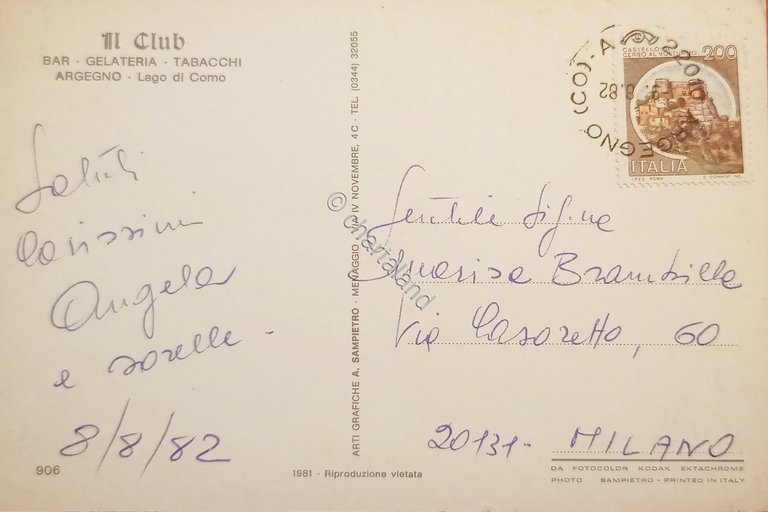 Il Club
BAR - GELATERIA - TABACCHI
ARGEGNO - Lago di Como
Saluti
Carissimi
Angela
e sorelle -
8/8/82
906
1981 - Riproduzione vietata
ARTI GRAFICHE A. SAMPIETRO - MENAGGIO, VIA IV NOVEMBRE, 4 C - TEL. (0344) 32055
© chartaland
22010 ARGEGNO (CO) - A
8.82
CASTELLO
CERRO AL VOLTURNO
200
ITALIA
I.P.Z.S. ROMA
E. DONNINI INC.
Gentile Sig.na
Marisa Brambilla
Via Casoretto, 60
20131 - MILANO
DA FOTOCOLOR KODAK EKTACHROME
PHOTO SAMPIETRO - PRINTED IN ITALY